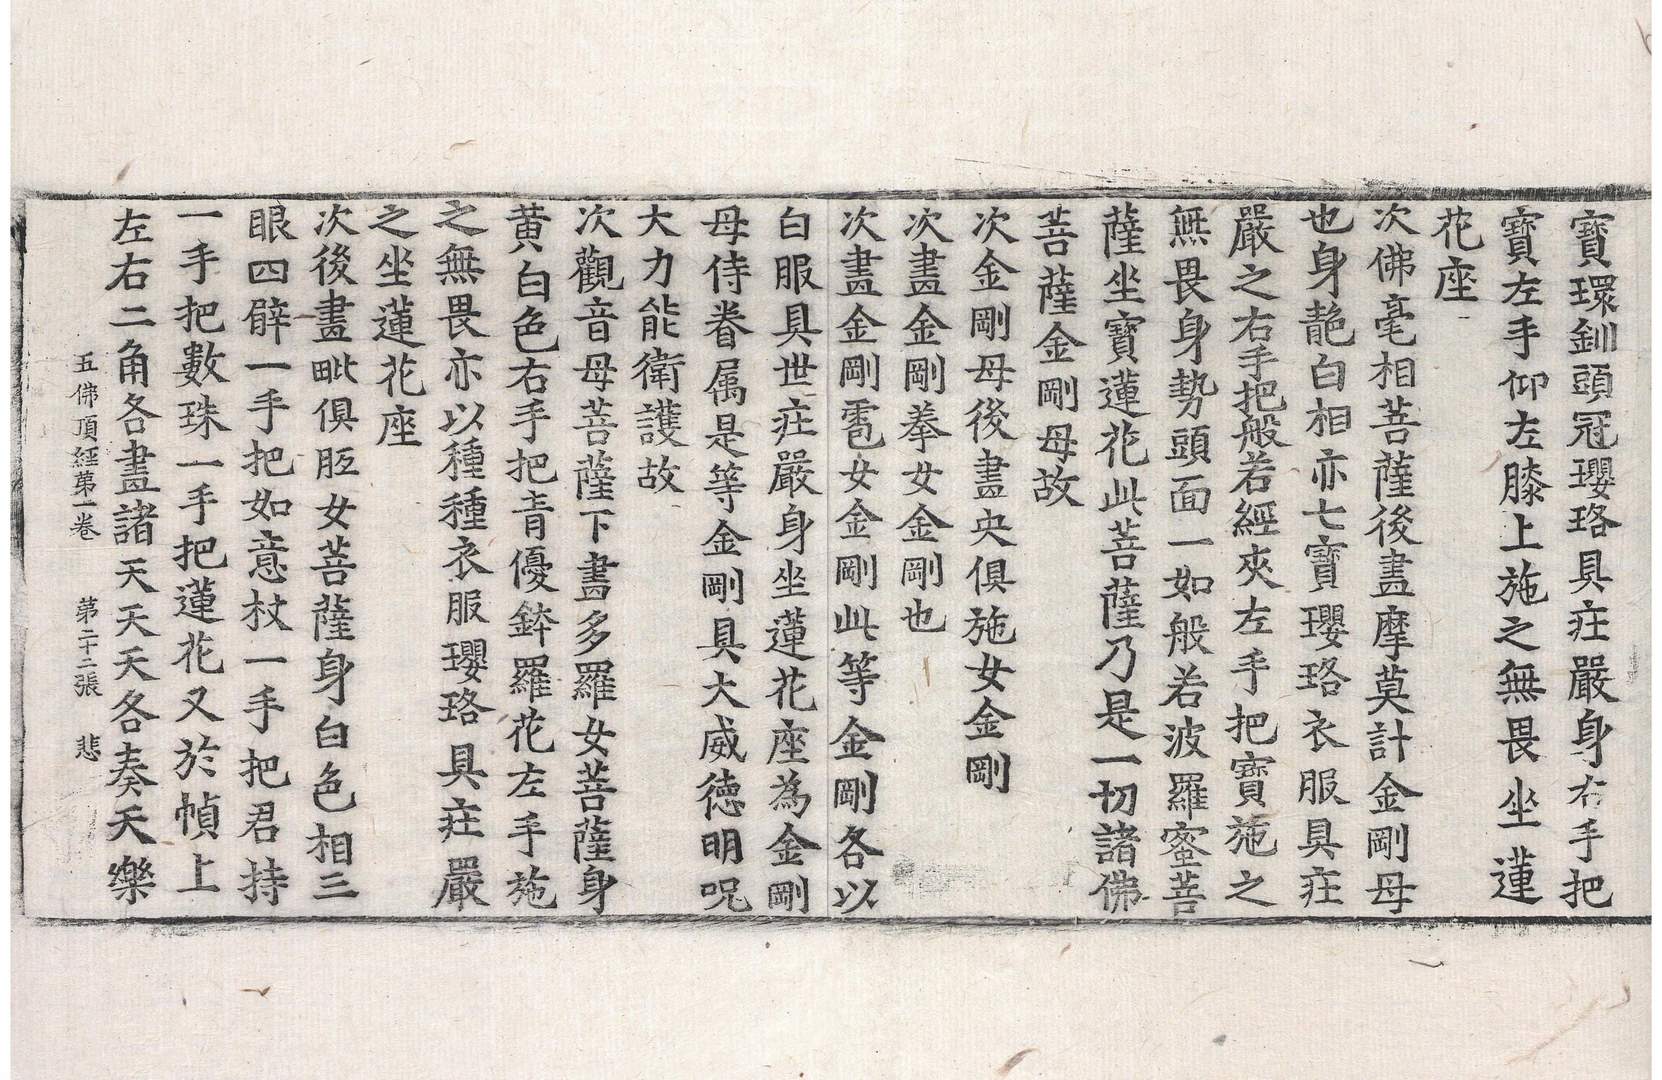 寶環釧頭冠瓔珞具庄嚴身右手把
寶左手仰左膝上施之無畏坐蓮
花座
次佛毫相菩薩後畫摩莫計金剛母
也身艶白相亦七寶瓔珞衣服具庄
嚴之右手把般若經夾左手把寶施之
無畏身勢頭面一如般若波羅蜜菩
薩坐寶蓮花此菩薩乃是一切諸佛
菩薩金剛母故
次金剛母後畫央俱施女金剛
次畫金剛拳女金剛也
次畫金剛雹女金剛此等金剛各以
白服具世庄嚴身坐蓮花座為金剛
母侍眷属是等金剛具大威徳明呪
大力能衛護故
次觀音母菩薩下畫多羅女菩薩身
黄白色右手把青優鉢羅花左手施
之無畏亦以種種衣服瓔珞具庄嚴
之坐蓮花座
次後畫毗俱胝女菩薩身白色相三
眼四臂一手把如意杖一手把君持
一手把數珠一手把蓮花又於幀上
左右二角各畫諸天天天各奏天樂
五佛頂經第一卷 第二十二張 悲